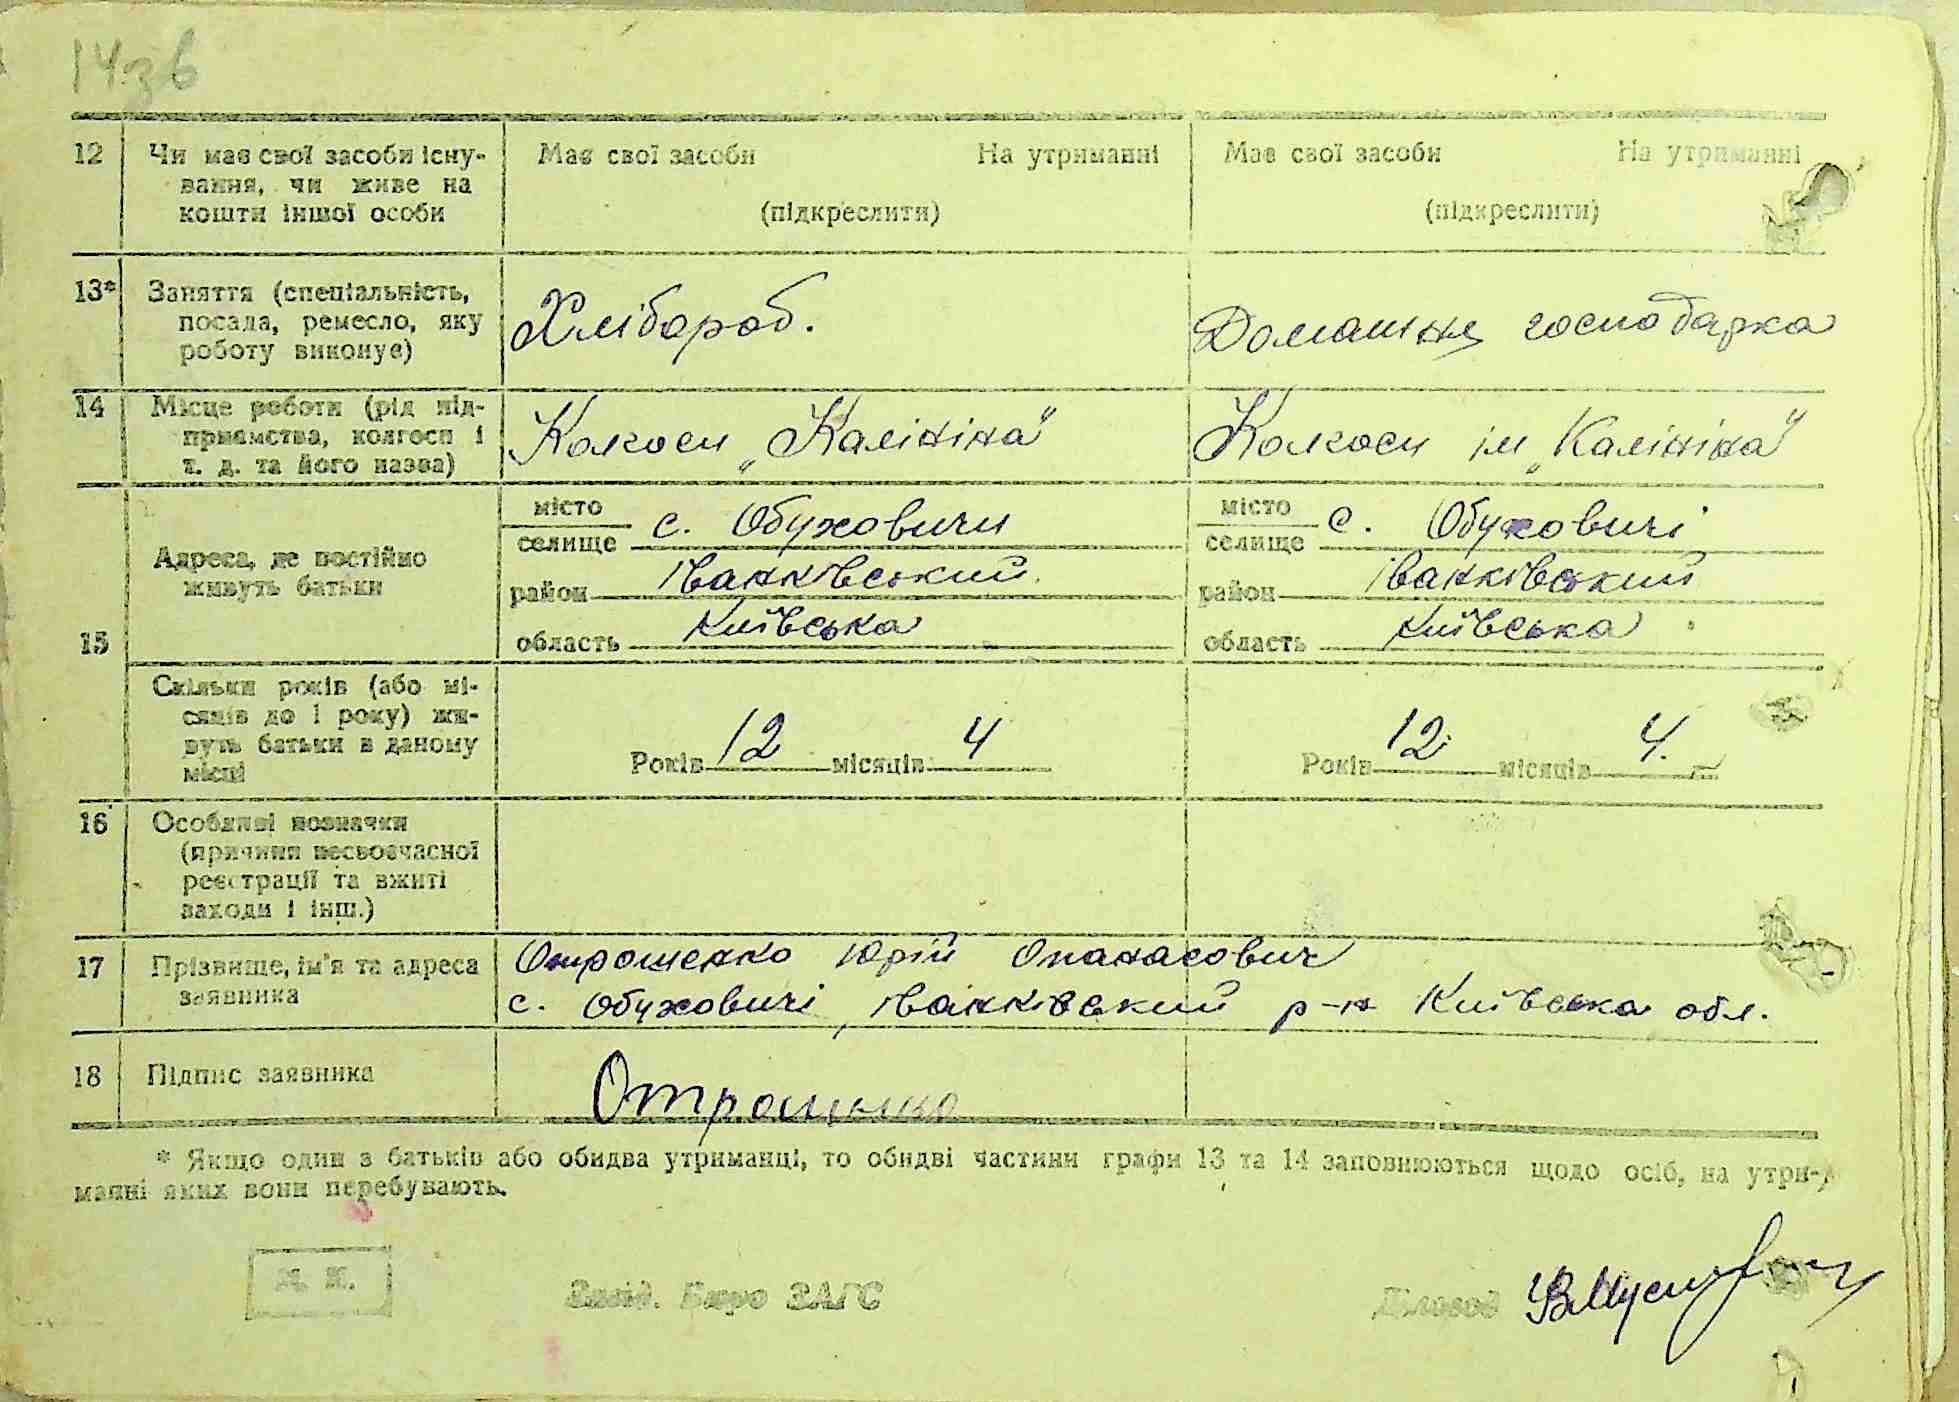 14зв
12 Чи має свої засоби існу- Має свої засоби На утриманні Має свої засоби На утриманні
вання, чи живе на
кошти іншої особи (підкреслити) (підкреслити)
13* Заняття (спеціальність,
посада, ремесло, яку Хлібороб. Домашня господарка
роботу виконує)
14 Місце роботи (рід під-
приємства, колгосп і Колхосп „Калініна" Колхосп ім „Калініна"
т. д. та його назва)
15 Адреса, де постійно живуть батьки
місто селище с. Обуховичи місто селище с. Обуховичі
район Іванківський район Іванківський
область Київська область Київська
Скільки років (або мі-
сяців до 1 року) жи-
вуть батьки в даному Років 12 місяців 4 Років 12 місяців 4.
місці
16 Особливі позначки
(причини несвоєчасної
реєстрації та вжиті
заходи і інш.)
17 Прізвище, ім'я та адреса Отрошенко Юрій Опанасович
заявника с. Обуховичі, Іванківський р-н Київська обл.
18 Підпис заявника Отрошенко
* Якщо один з батьків або обидва утриманці, то обидві частини графи 13 та 14 заповнюються щодо осіб, на утри-
манні яких вони перебувають.
М. П. Завід. Бюро ЗАГС Діловод